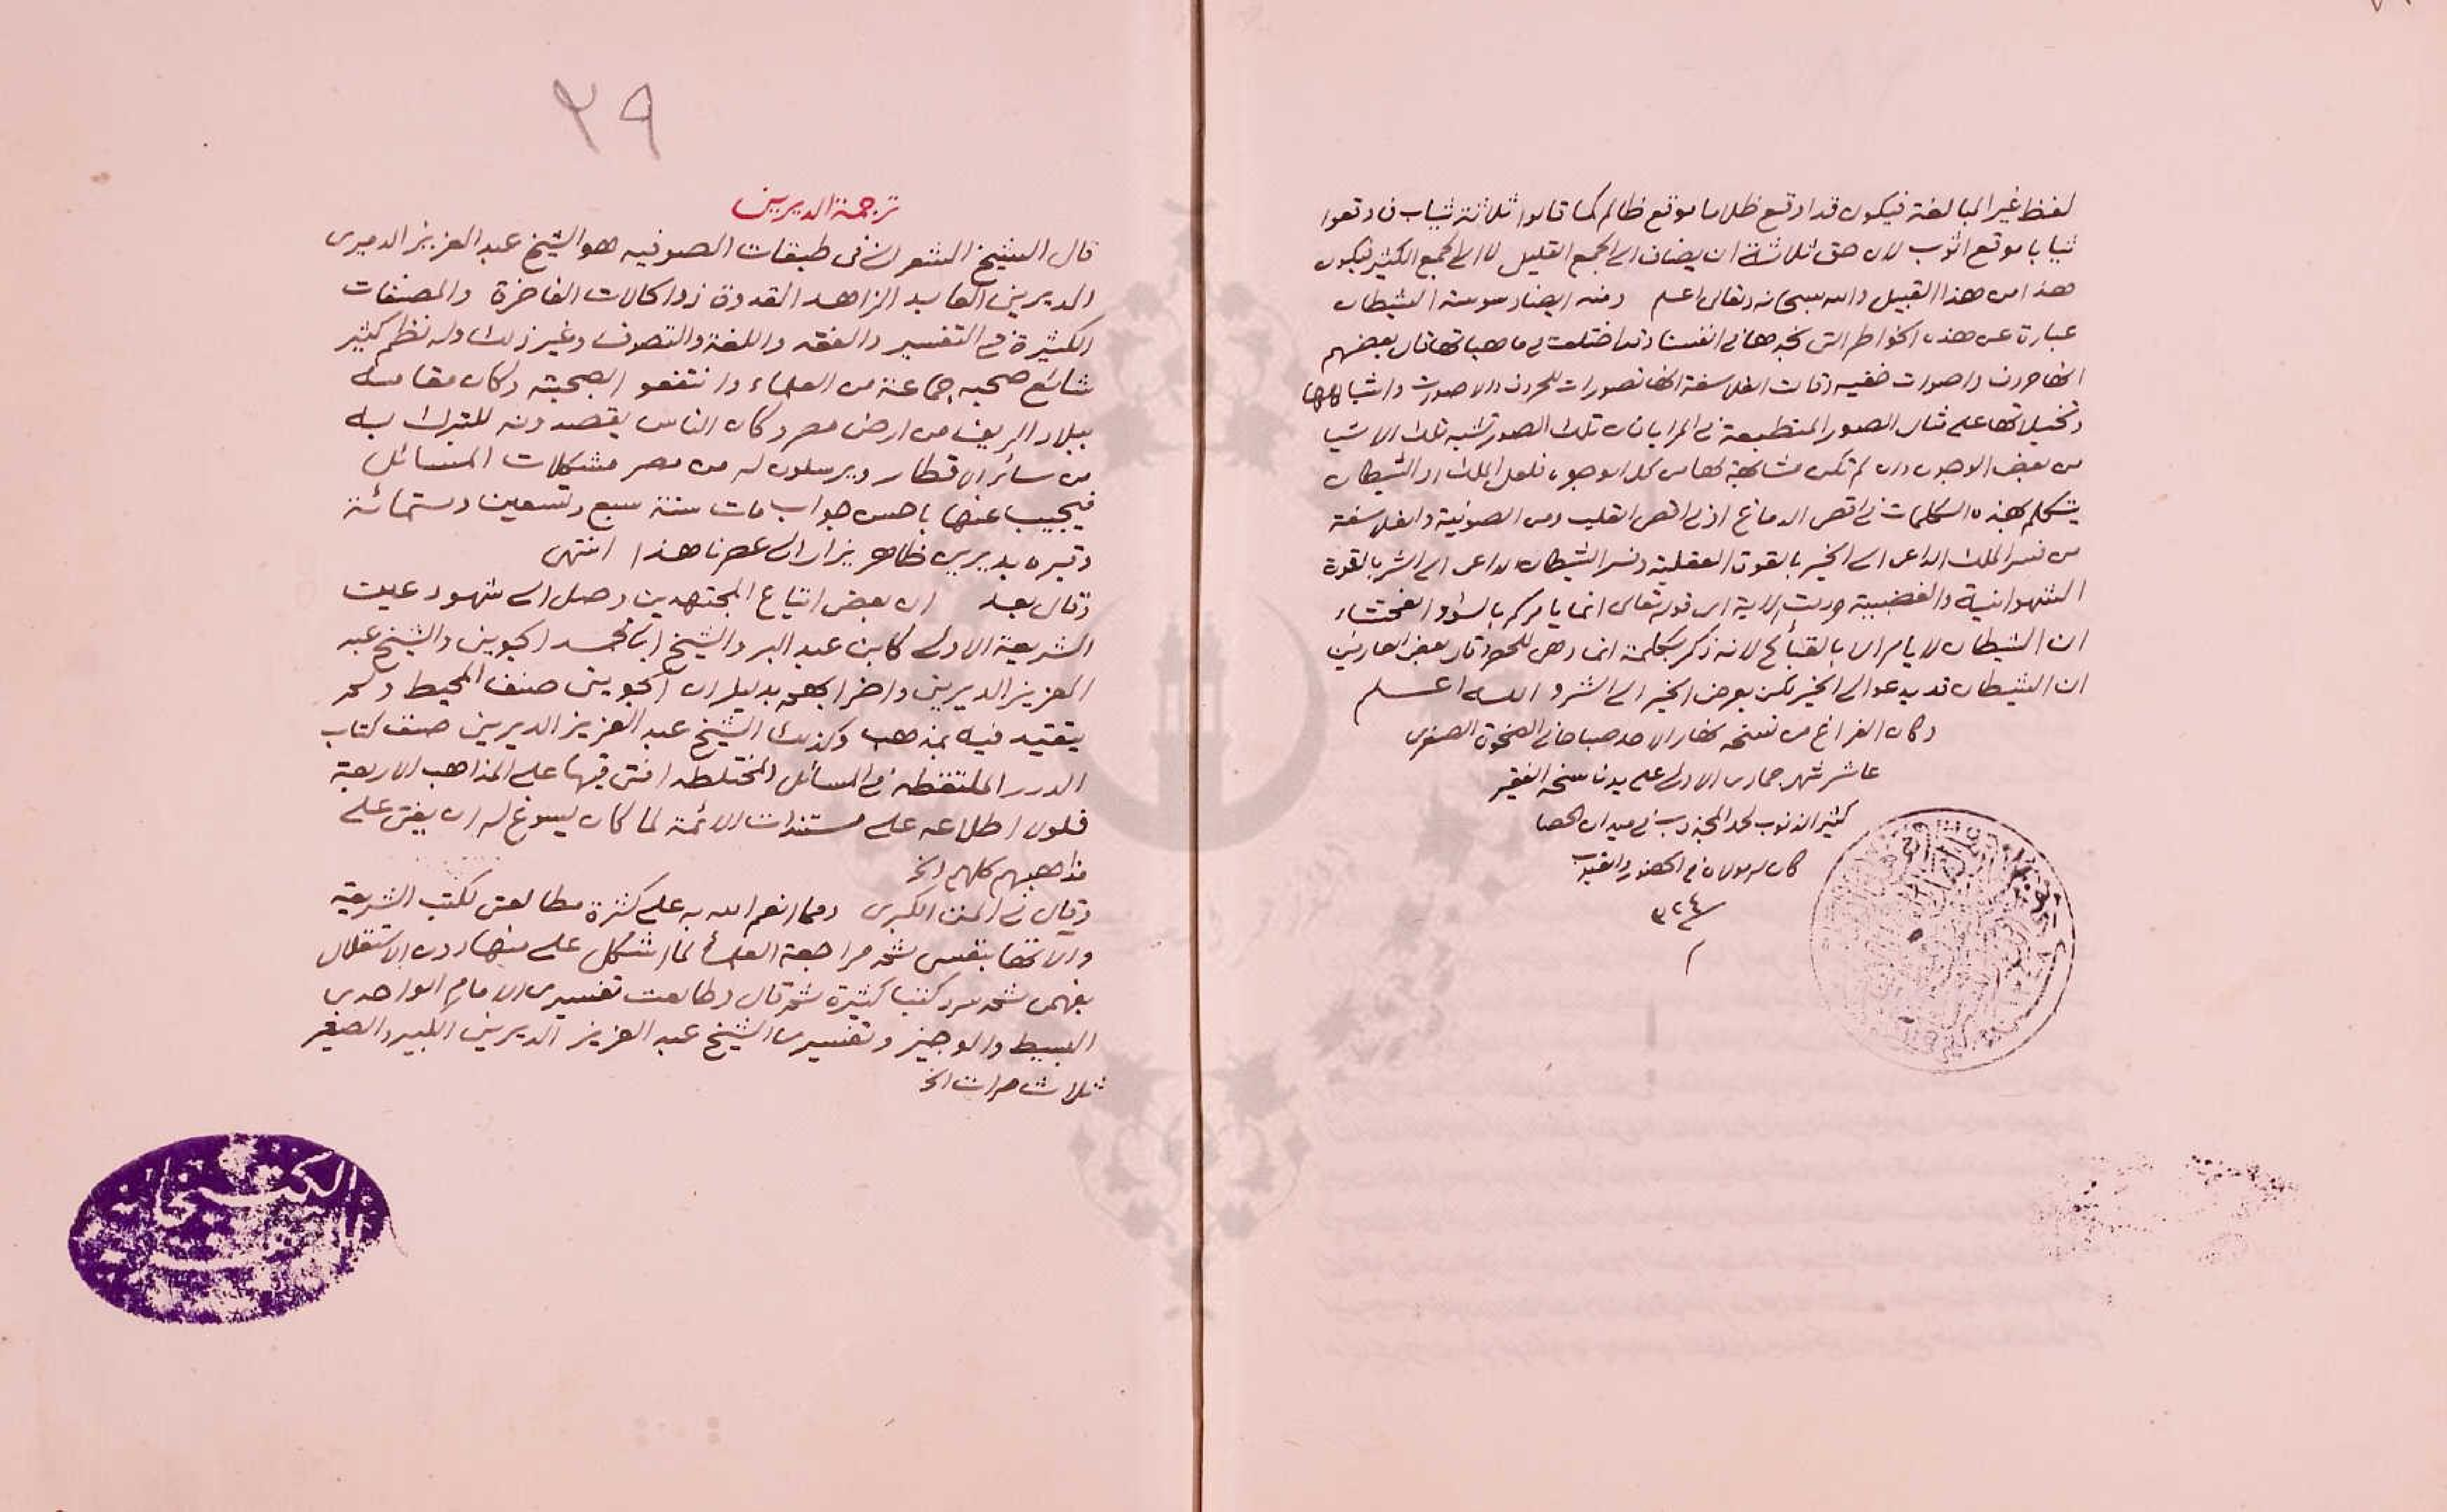 لفظ غير المبالغة فيكون قد اوقع ظلاما موقع ظالم كما قالوا ثلاثة ثياب فاوقعوا
ثيابا موقع اثوب لان حق ثلاثة ان يضاف الى الجمع القليل لا الى الجمع الكثير فيكون
هذا من هذا القبيل والله سبحانه وتعالى اعلم ومنه ايضا وسوسة الشيطان
عبارة عن هذه الخواطر التى نجدها فى انفسنا وقد اختلفت فى ماهياتها قال بعضهم
انها حروف واصوات خفيه وقالت الفلاسفة انها تصورات للحروف والاصوات واشباهها
وتخيلاتها على مثال الصور المنطبعة فى المرايا فان تلك الصور تشبه تلك الاشيا
من بعض الوجوه وان لم تكن مشابهة لها من كل الوجوه فلعل الملك او الشيطان
يتكلم بهذه الكلمات فى اقصى الدماغ او فى اقصى القلب ومن الصوفية والفلاسفة
من فسر الملك الداعى الى الخير بالقوة العقلية وفسر الشيطان الداعى الى الشر بالقوة
الشهوانية والغضبية ودلت الاية اى قوله تعالى انما يامركم بالسؤ والفحشاء
ان الشيطان لا يامر الا بالقبائح لانه ذكر بكلمة انما وهى للحصر وقال بعض العارفين
ان الشيطان قد يدعو الى الخير لكن بعرض الخير الى الشر والله اعلم
وكان الفراغ من نسخه نهار الاحد صباحا فى الضحوة الصغرى
عاشر شهر جمادى الاولى على يد ناسخه الفقير
كثير الذنوب محمد المجذوب فى ميدان الحصا
كان له مولاه فى الحضور والغيوب
٣٢٤
٢٩
ترجمة الديرينى
قال الشيخ الشعرانى فى طبقات الصوفيه هو الشيخ عبد العزيز الدميرى
الديرينى العابد الزاهد القدوة ذو الحالات الفاخرة والمصنفات
الكثيرة فى التفسير والفقه واللغة والتصوف وغير ذلك وله نظم كثير
شائع صحبه جماعة من العلماء وانتفعوا بصحبته وكان مقامه
ببلاد الريف من ارض مصر وكان الناس يقصدونه للتبرك به
من سائر الاقطار ويرسلون له من مصر مشكلات المسائل
فيجيب عنها باحسن جواب مات سنة سبع وتسعين وستمائة
وقبره بديرين ظاهر يزار الى عصرنا هذا انتهى
وقال بعد ان بعض اتباع المجتهدين وصل الى شهود عين
الشريعة الاولى كابن عبد البر والشيخ ابى محمد الجوينى والشيخ عبد
العزيز الديرينى واضرابهم بدليل ان الجوينى صنف المحيط ولم
يتقيد فيه بمذهب وكذلك الشيخ عبد العزيز الديرينى صنف كتاب
الدرر الملتقطه فى المسائل المختلطه افتى فيها على المذاهب الاربعة
فلولا اطلاعه على مستندات الائمة لما كان يسوغ له ان يفتى على
مذاهبهم كلهم الخ
وقال فى المنن الكبرى ومما انعم الله به على كثرة مطالعتى لكتب الشريعة
والاتها بنفسى ثم مراجعة العلماء لما اشكل على منها دون الاستقلال
بفهمى ثم سرد كتبا كثيرة ثم قال وطالعت تفسيرى الامام الواحدى
البسيط والوجيز وتفسيرى الشيخ عبد العزيز الديرينى الكبير والصغير
ثلاث مرات الخ
الكتبخانة